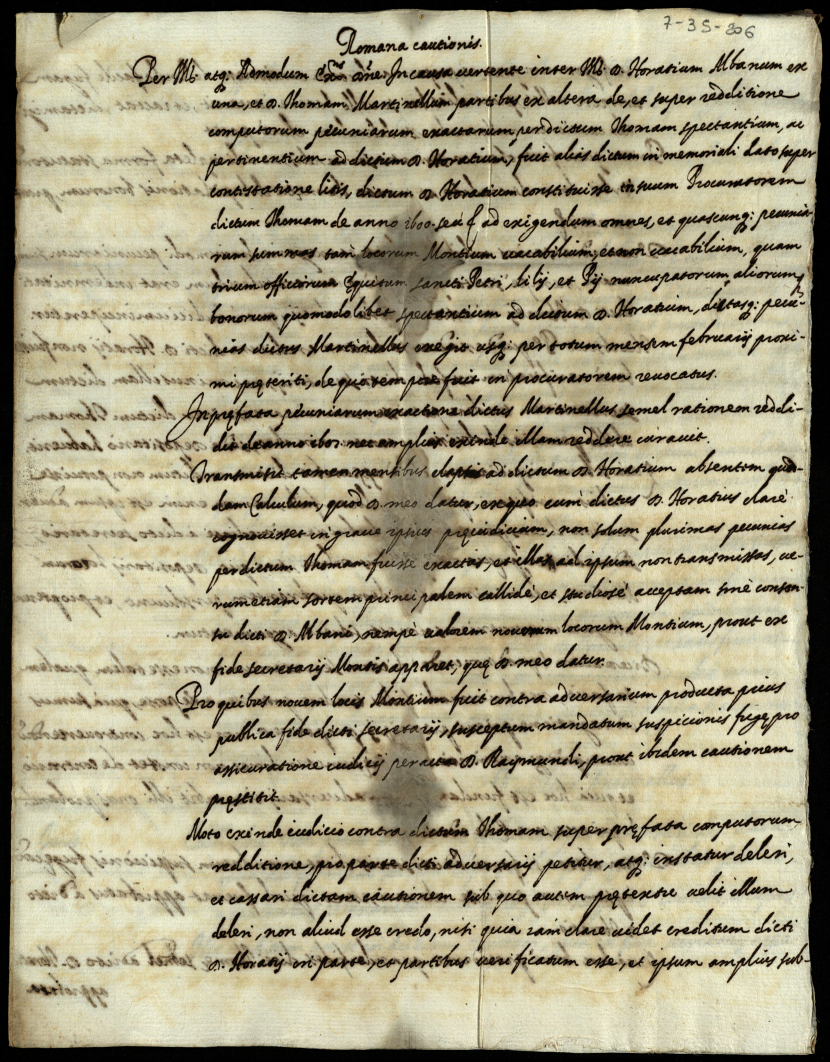 7-35-206
Romana cautionis.
Per Ill: atq; Admodum Exc. dne: In causa vertente inter Ill: D. Horatium Albanum ex
una, et D. Thomam Martinellum partibus ex altera de, et super redditione
computorum pecuniarum exactarum per dictum Thomam spectantium, ac
pertinentium ad dictum D. Horatium, fuit alias dictum in memoriali dato super
contestatione litis, dictum D. Horatium constituisse in suum Procuratorem
dictum Thomam de anno 1600. ad exigendum omnes, et quascunq; pecunia-
rum summas tam locorum Montium vacabilium, et non vacabilium, quam
trium officiorum Equitum sancti Petri, lilij, et Pij nuncupatorum aliorumq;
bonorum quomodolibet spectantium ad dictum D. Horatium, dictasq; pecu-
nias dictus Martinellus exegit usq; per totum mensem februarij proxi-
mi pręteriti, de quo tempore fuit in procuratorem revocatus.
In pręfata pecuniarum exactione dictus Martinellus semel rationem reddi-
dit de anno 1601. nec amplius exinde illam reddere curavit.
Transmisit tamen mensibus elapsis ad dictum D. Horatium absentem quod-
dam Calculum, quod D. meo datur, ex quo cum dictus D. Horatius clarè
cognovisset in grave ipsius pręiudicium, non solum plurimas pecunias
per dictum Thomam fuisse exactas, et illas ad ipsum non transmissas, ve-
rum etiam sortem principalem callidè, et studiosè acceptam sine consen-
su dicti D. Albani, nempè valorem novem locorum Montium, prout ex
fide secretarij Montis apparet, quę D. meo datur.
Pro quibus novem locis Montium fuit contra adversarium producta prius
publica fide dicti secretarij, susceptum mandatum suspicionis fugę pro
assicuratione iudicij per acta D. Raymundi, prout ibidem cautionem
pręstitit.
Moto exinde iudicio contra dictum Thomam super pręfata computorum
redditione, pro parte dicti adversarij petitur, atq; instatur deleri,
et cassari dictam cautionem sub quo autem pretextu velit illam
deleri, non aliud esse credo, nisi quia iam clare videt creditum dicti
D. Horatij in parte, et partibus verificatum esse, et ipsum amplius sub-